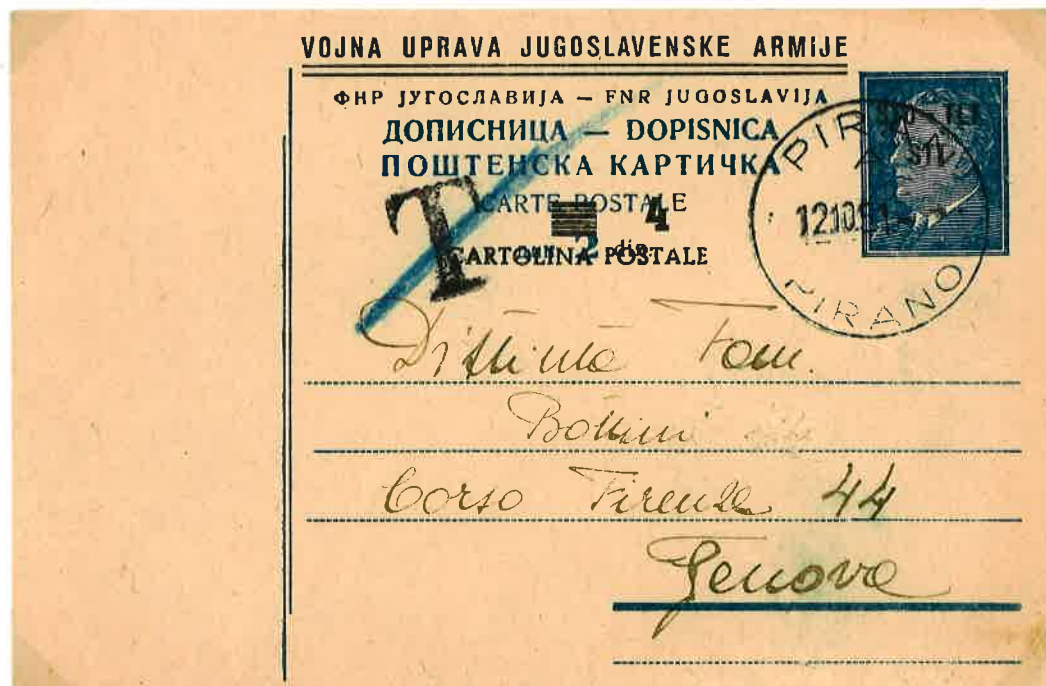 VOJNA UPRAVA JUGOSLAVENSKE ARMIJE
ФНР ЈУГОСЛАВИЈА — FNR JUGOSLAVIJA
ДОПИСНИЦА — DOPISNICA
ПОШТЕНСКА КАРТИЧКА
CARTE POSTALE
4
2 din
CARTOLINA POSTALE
T
STT
PIRAN
12.10.51
PIRANO
Distinta Fam.
Bottini
Corso Firenze 44
Genova